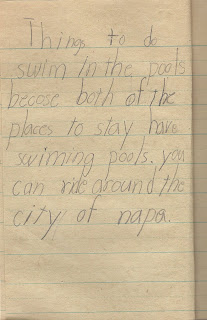 Things to do
swim in the pools
becose both of the
places to stay have
swiming pools. you
can ride around the
city of napa.